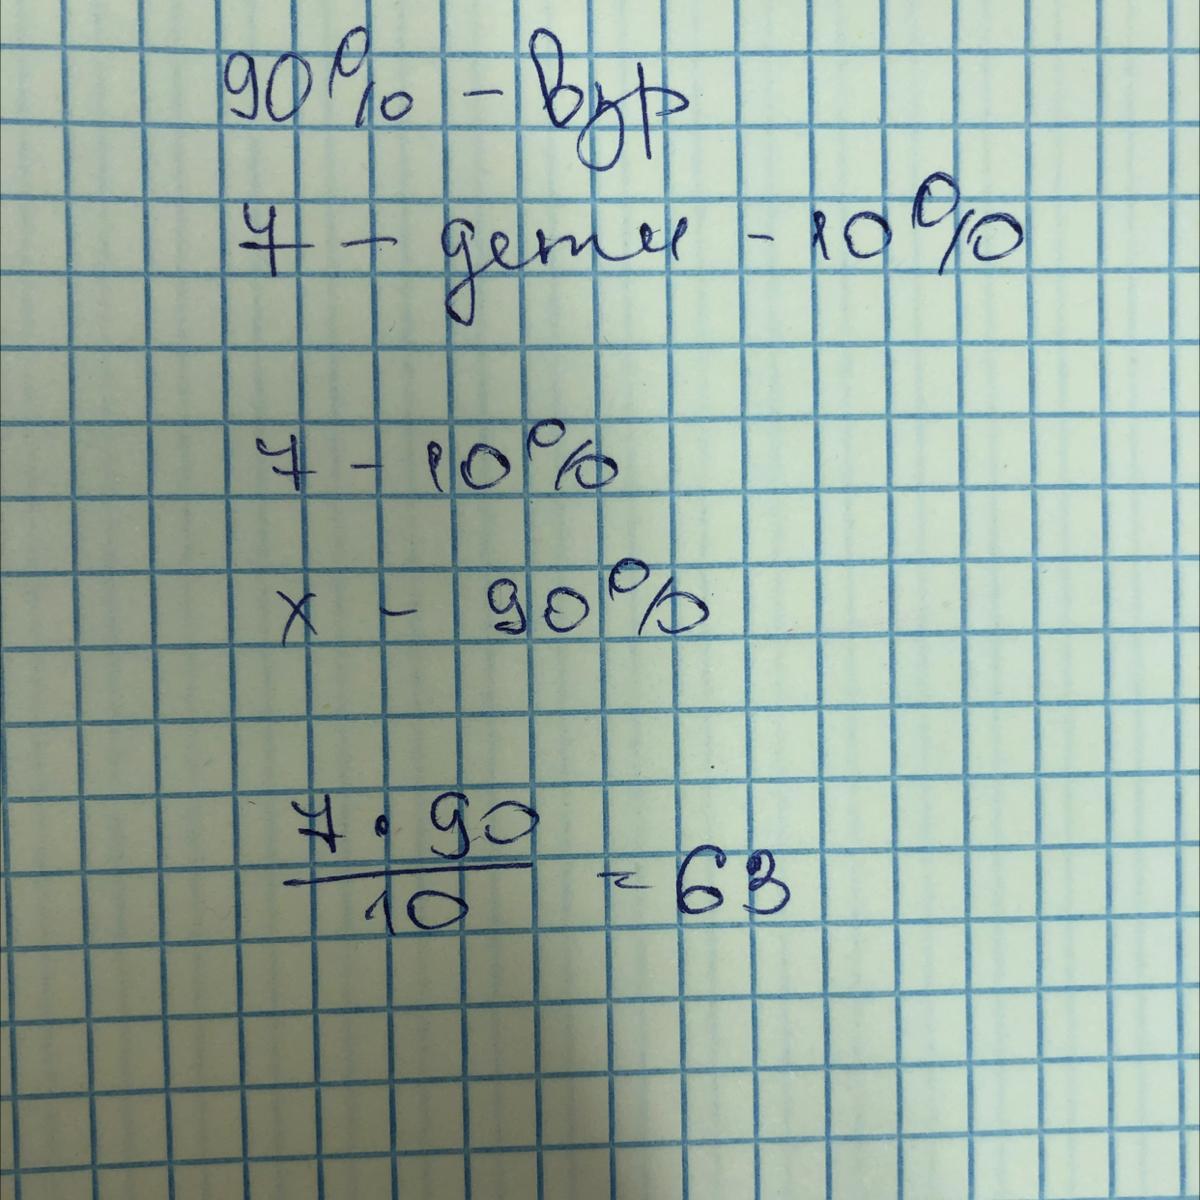 90% - взр
7 - дети - 10%
7 - 10%
х - 90%
7 · 90
10
= 63